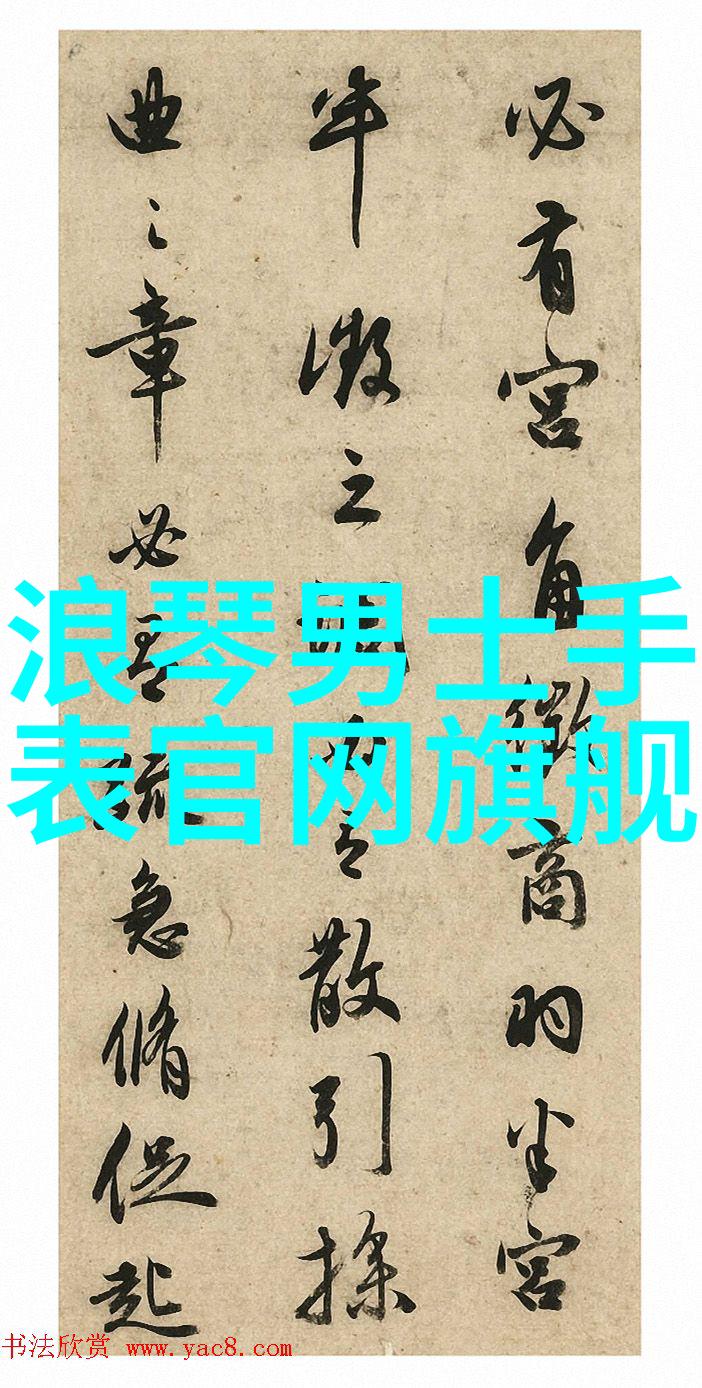 必有宫角徵商羽半宫
半徵之調為之散引操
曲之章必琴疏急脩促起
浪琴男士手
表官网旗舰
书法欣赏 www.yac8.com